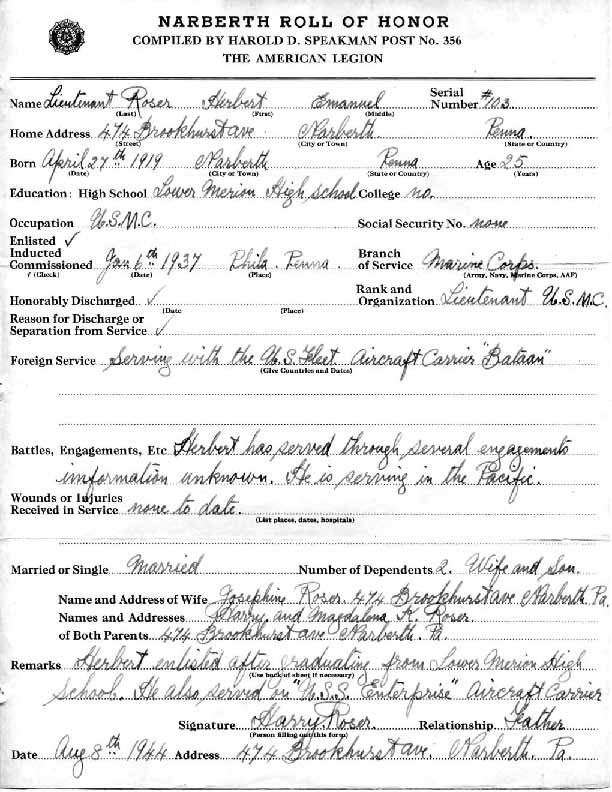 NARBERTH ROLL OF HONOR
COMPILED BY HAROLD D. SPEAKMAN POST No. 356
THE AMERICAN LEGION
Name Lieutenant Roser Herbert Emanuel Serial Number #703
(Last) (First) (Middle)
Home Address 474 Brookhurst ave. Narberth Penna
(Street) (City or Town) (State or Country)
Born April 27th 1919 Narberth Penna Age 25
(Date) (City or Town) (State or Country) (Years)
Education: High School Lower Merion High School College no.
Occupation U.S.M.C. Social Security No. none
Enlisted ✓
Inducted
Commissioned Jan 6th 1937 Phila. Penna. Branch of Service Marine Corps.
√ (Check) (Date) (Place) (Army, Navy, Marine Corps, AAF)
Honorably Discharged ✓ Rank and Organization Lieutenant U.S.M.C.
(Date (Place)
Reason for Discharge or
Separation from Service ✓
Foreign Service Serving with the U.S. Fleet Aircraft Carrier "Bataan"
(Give Countries and Dates)
Battles, Engagements, Etc. Herbert has served through several engagements
imformation unknown. He is serving in the Pacific.
Wounds or Injuries
Received in Service none to date.
(List places, dates, hospitals)
Married or Single Married Number of Dependents 2. Wife and Son.
Name and Address of Wife Josephine Roser. 474 Brookhurst ave Narberth Pa.
Names and Addresses Harry and Magdalena K. Roser
of Both Parents 474 Brookhurst ave Narberth. Pa.
Remarks Herbert enlisted after graduating from Lower Merion High
(Use back of sheet if necessary)
School. He also served on "U.S.S. Enterprise" Aircraft Carrier
Signature Harry Roser. Relationship Father
(Person filling out this form)
Date Aug 8th 1944 Address 474 Brookhurst ave. Narberth. Pa.